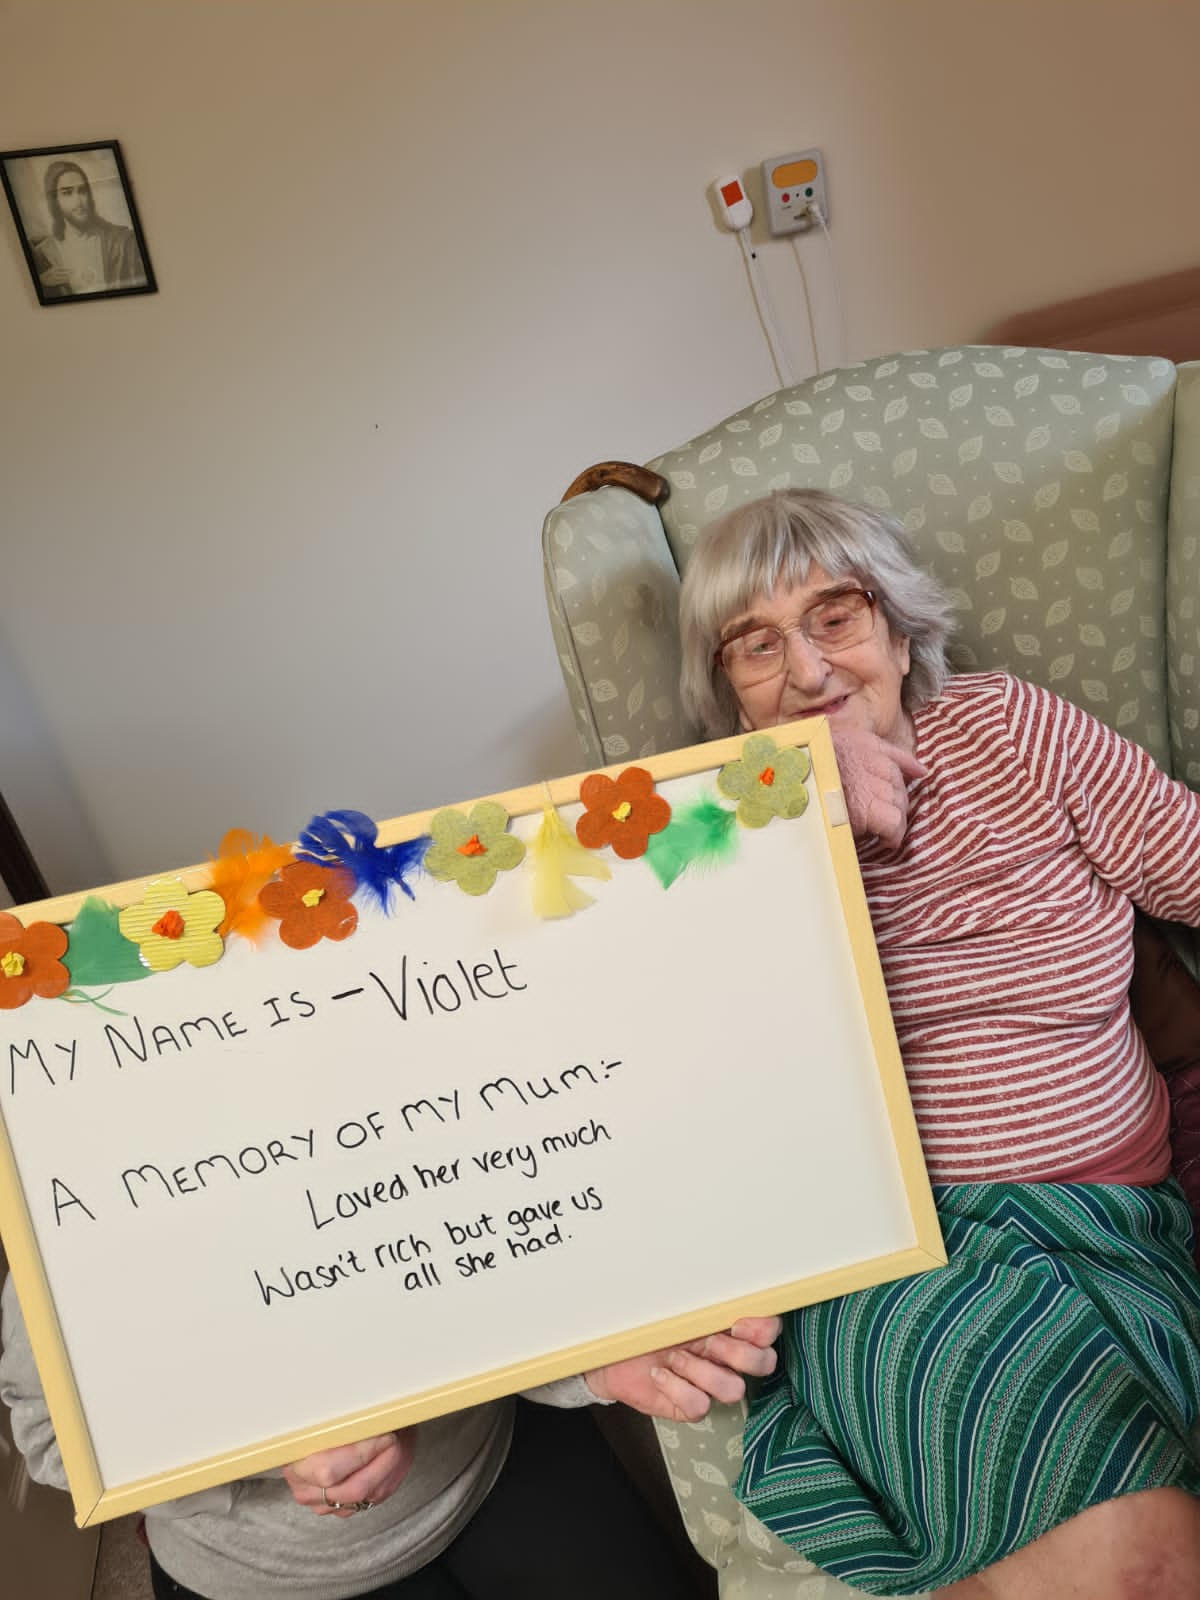 MY NAME IS - Violet
A MEMORY OF MY MUM:-
Loved her very much
Wasn't rich but gave us
all she had.